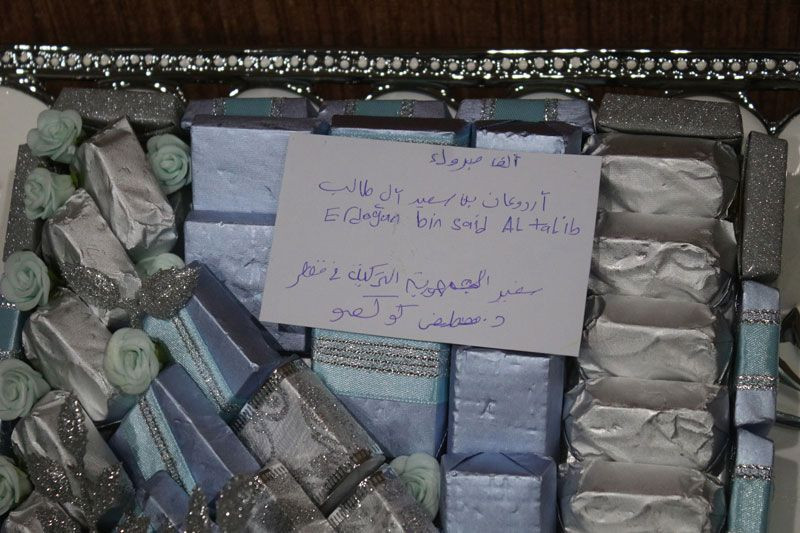 ألف مبروك
أردوغان بن سعيد آل طالب
Erdoğan bin said AL talib
سفير الجمهورية التركية في قطر
د. مصطفى كوكصو